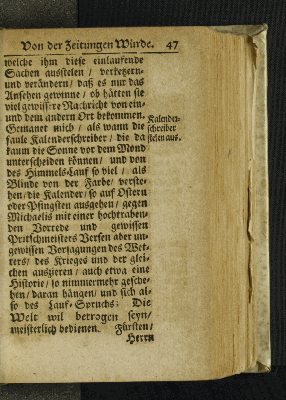 Von der Zeitungen Würde. 47
welche ihm diese einlaufende
Sachen ausstelen / verketzern-
und verändern / daß es nur das
Ansehen gewinne / ob hätten sie
viel gewissere Nachricht von ein-
und dem andern Ort bekommen.
Gemanet mich / als wann die
faule Kalenderschreiber / die da
kaum die Sonne vor dem Mond
unterscheiden können / und von
des Himmels-Lauf so viel / als
Blinde von der Farbe / verste-
hen / die Kalender / so auf Ostern
oder Pfingsten ausgehen / gegen
Michaelis mit einer hochtraben-
den Vorrede und gewissen
Pritschmeisters Versen aber un-
gewissen Vorsagungen des Wet-
ters / des Krieges und der glei-
chen auszieren / auch etwa eine
Historie / so nimmermehr gesche-
hen / daran hängen / und sich al-
so des Lauf-Spruchs: Die
Welt wil betrogen seyn /
meisterlich bedienen. Fürsten /
Herrn
Kalender-
schreiber
stelen aus.